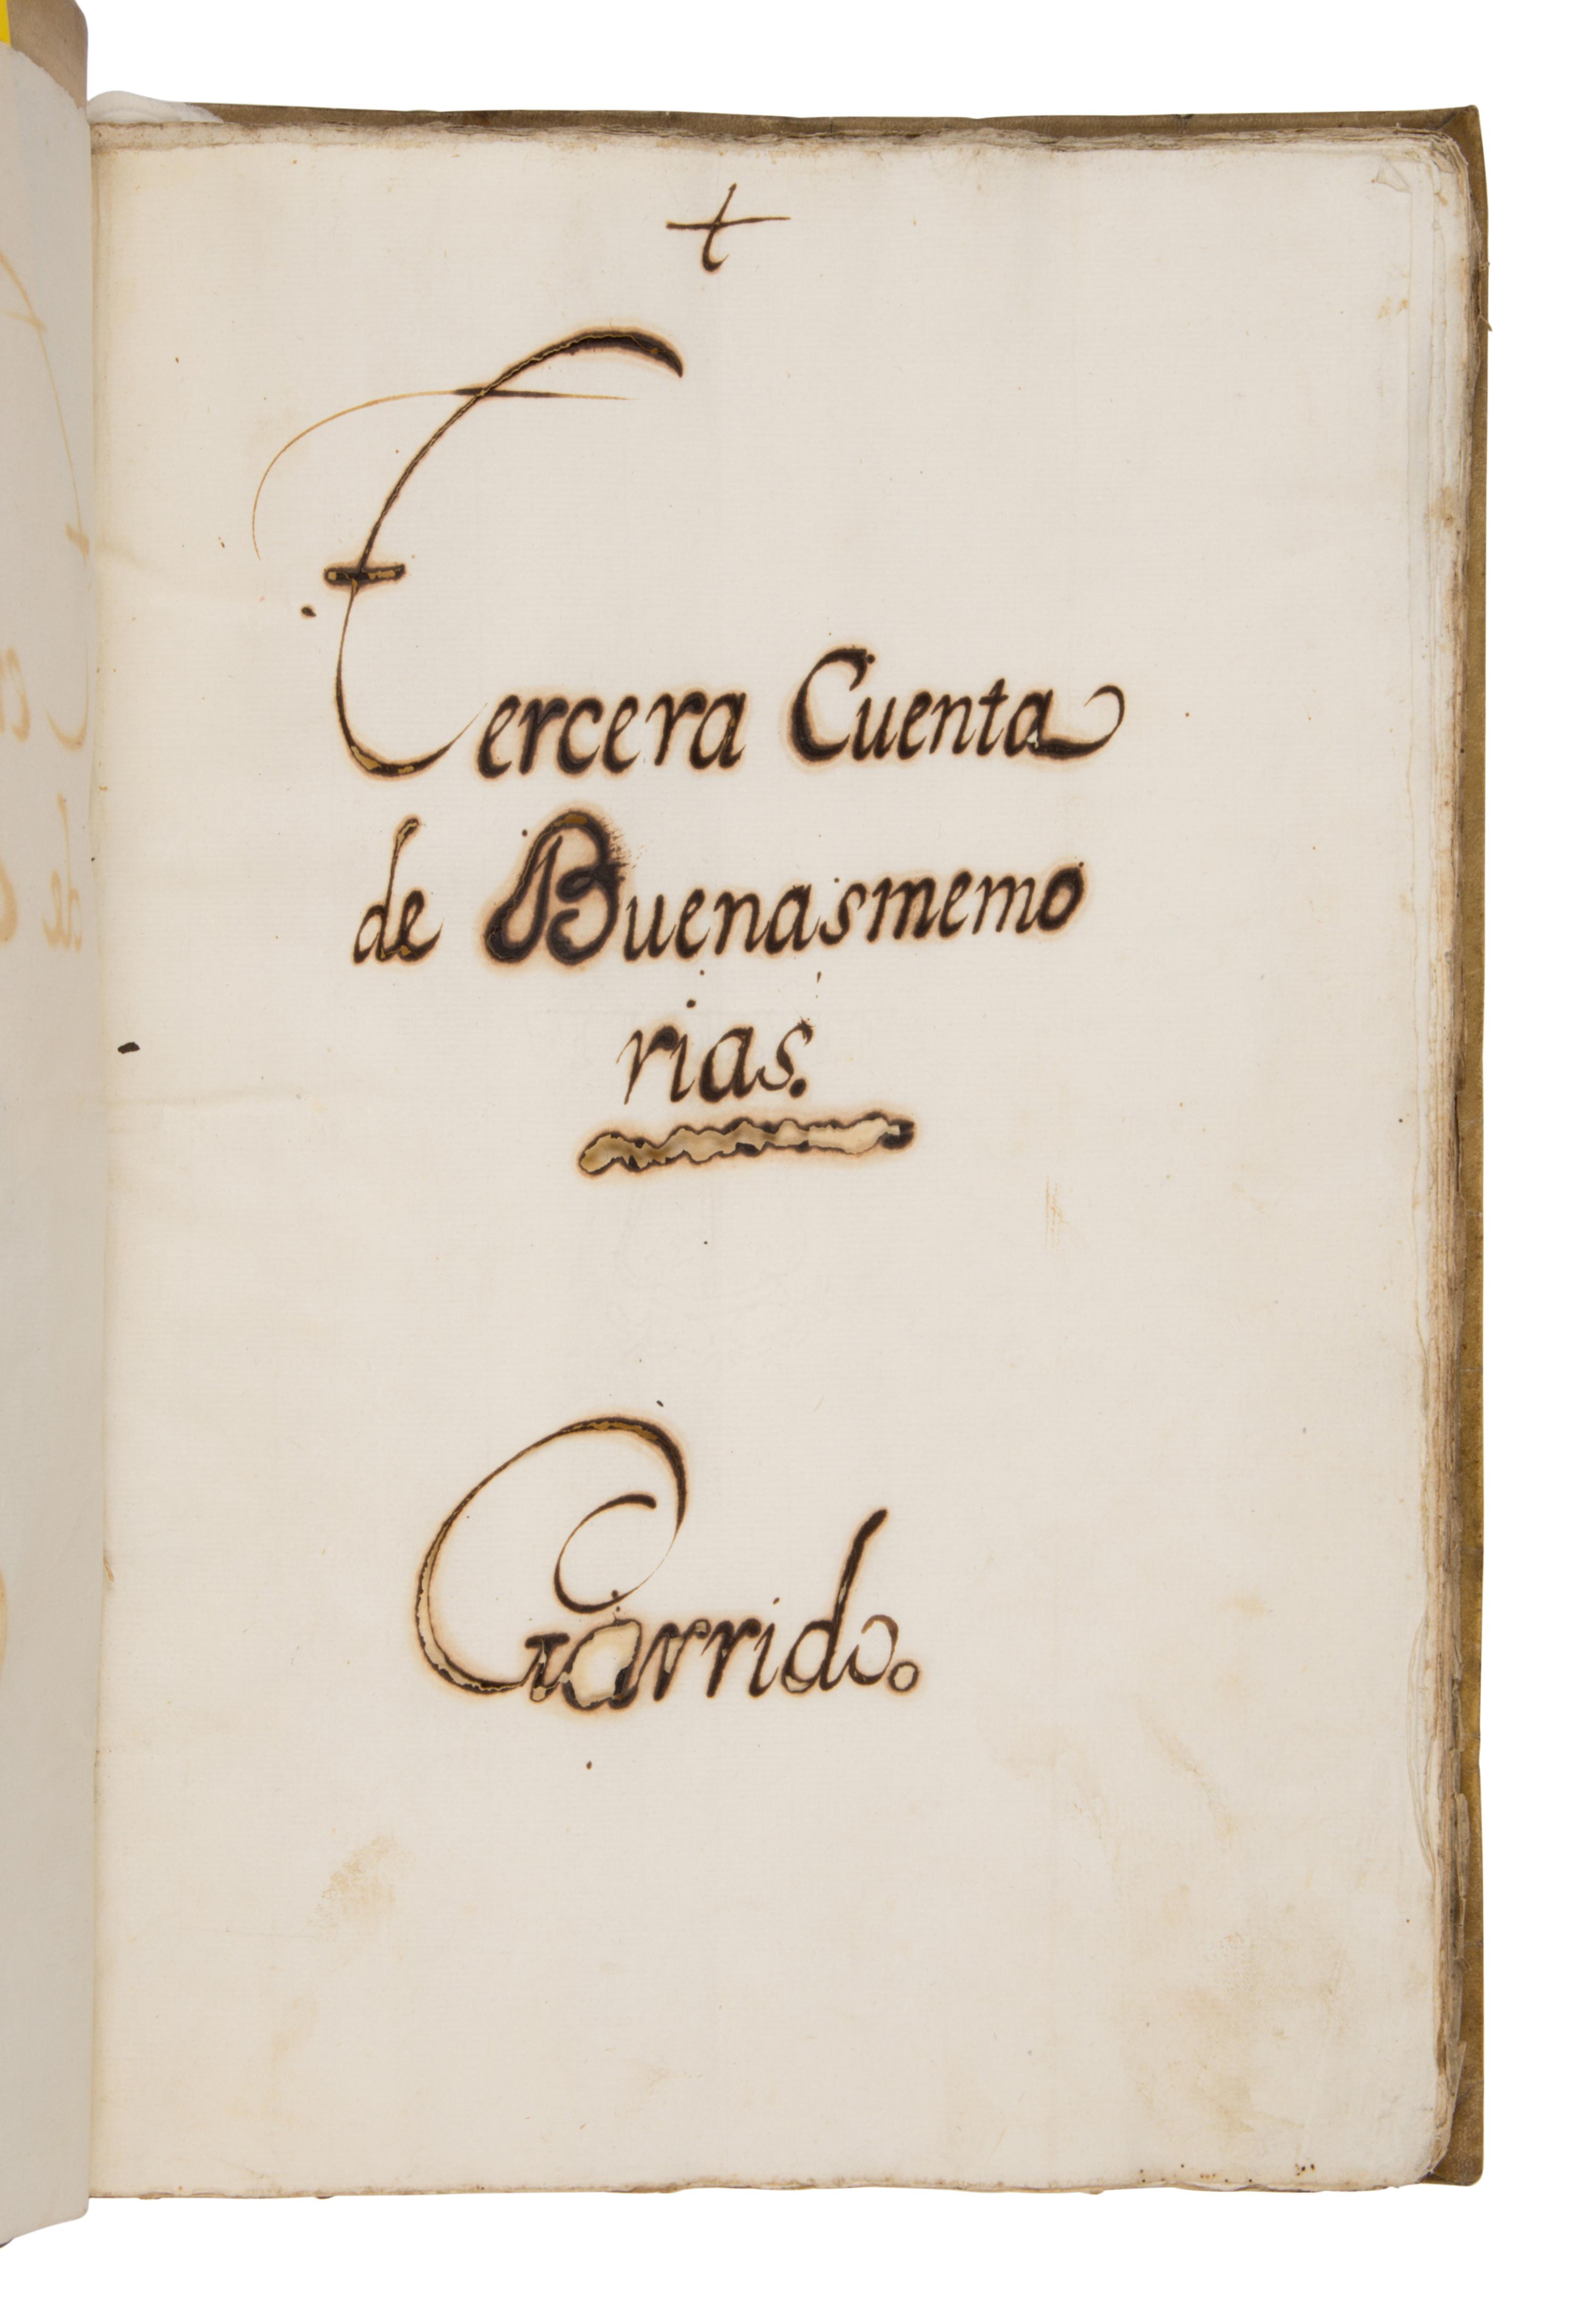 +
Tercera Cuenta
de Buenasmemo
rias.
Garrido.